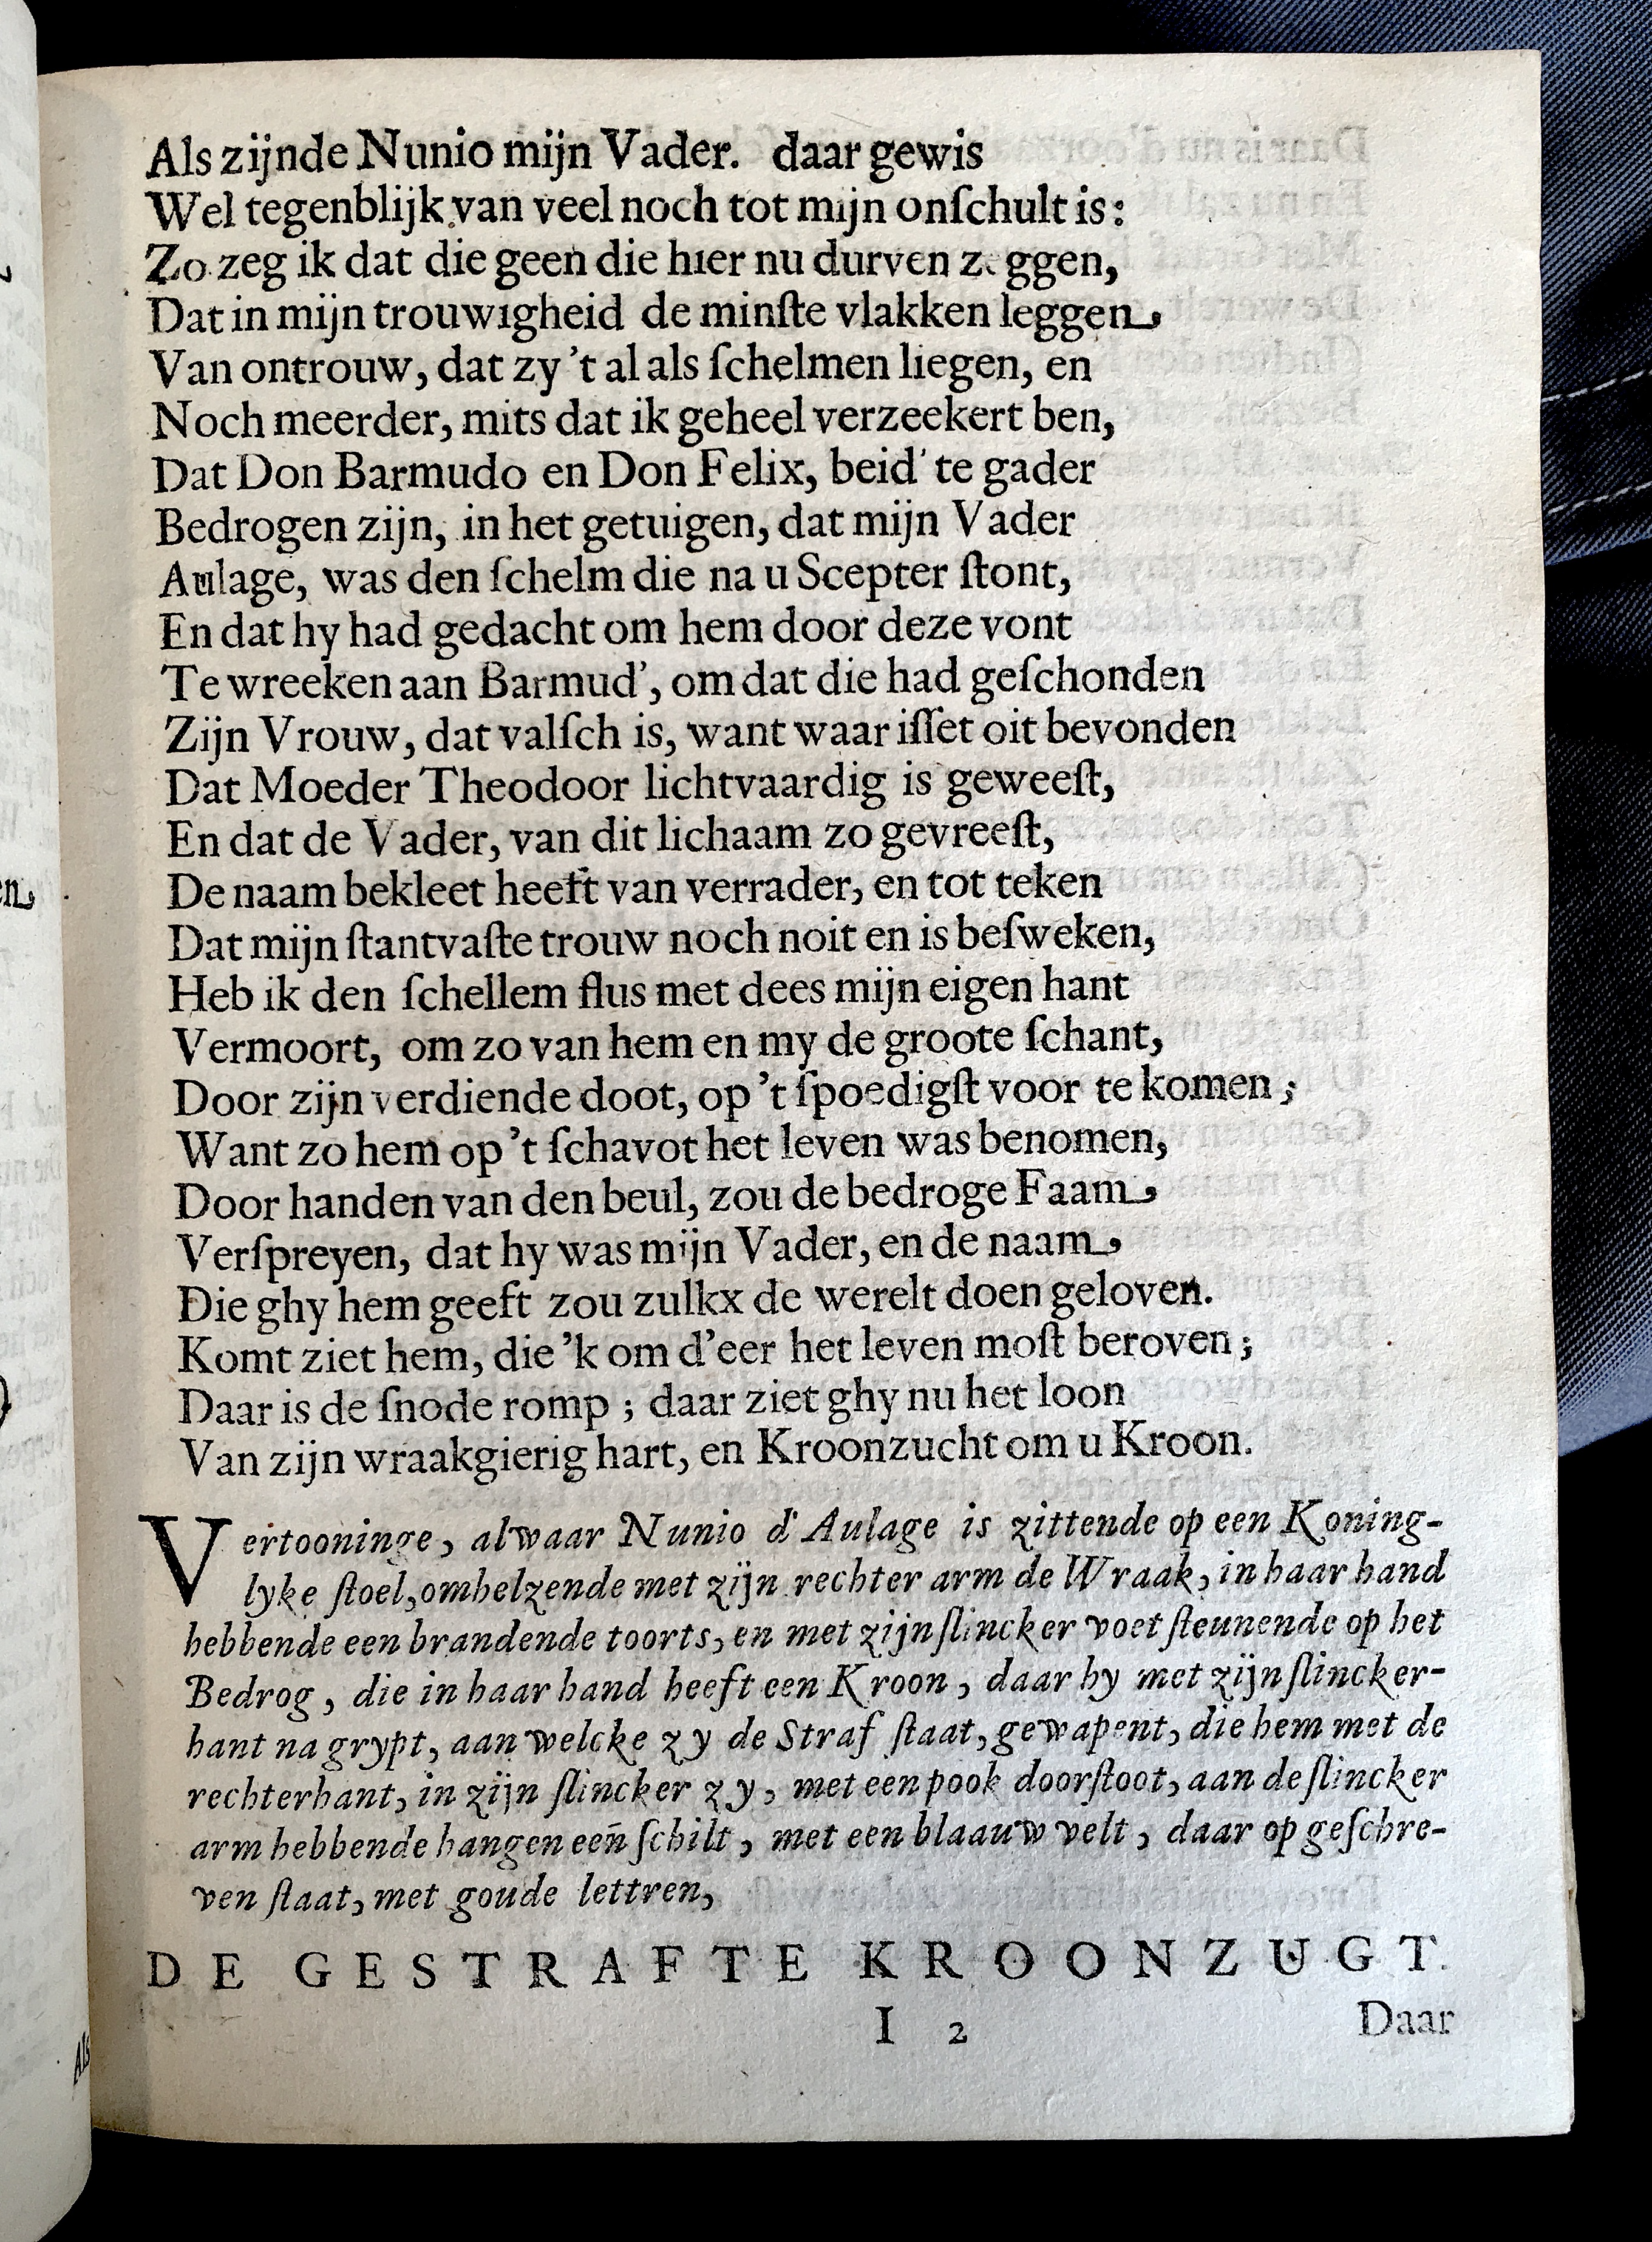 Als zijnde Nunio mijn Vader. daar gewis
Wel tegenblijk van veel noch tot mijn onſchult is:
Zo zeg ik dat die geen die hier nu durven zeggen,
Dat in mijn trouwigheid de minſte vlakken leggen,
Van ontrouw, dat zy 't al als ſchelmen liegen, en
Noch meerder, mits dat ik geheel verzeekert ben,
Dat Don Barmudo en Don Felix, beid' te gader
Bedrogen zijn, in het getuigen, dat mijn Vader
Aulage, was den ſchelm die na u Scepter ſtont,
En dat hy had gedacht om hem door deze vont
Te wreeken aan Barmud', om dat die had geſchonden
Zijn Vrouw, dat valſch is, want waar iſſet oit bevonden
Dat Moeder Theodoor lichtvaardig is geweeſt,
En dat de Vader, van dit lichaam zo gevreeſt,
De naam bekleet heeft van verrader, en tot teken
Dat mijn ſtantvaſte trouw noch noit en is beſweken,
Heb ik den ſchellem flus met dees mijn eigen hant
Vermoort, om zo van hem en my de groote ſchant,
Door zijn verdiende doot, op 't ſpoedigſt voor te komen;
Want zo hem op 't ſchavot het leven was benomen,
Door handen van den beul, zou de bedroge Faam,
Verſpreyen, dat hy was mijn Vader, en de naam,
Die ghy hem geeft zou zulkx de werelt doen geloven.
Komt ziet hem, die 'k om d'eer het leven moſt beroven;
Daar is de ſnode romp; daar ziet ghy nu het loon
Van zijn wraakgierig hart, en Kroonzucht om u Kroon.
Vertooninge, alwaar Nunio d' Aulage is zittende op een Koning-
lyke ſtoel, omhelzende met zijn rechter arm de Wraak, in haar hand
hebbende een brandende toorts, en met zijn ſlincker voet ſteunende op het
Bedrog, die in haar hand heeft een Kroon, daar hy met zijn ſlincker-
hant na grypt, aan welcke zy de Straf ſtaat, gewapent, die hem met de
rechterhant, in zijn ſlincker zy, met een pook doorſtoot, aan de ſlincker
arm hebbende hangen een ſchilt, met een blaauw velt, daar op geſchre-
ven ſtaat, met goude lettren,
DE GESTRAFTE KROONZUGT.
I 2 Daar